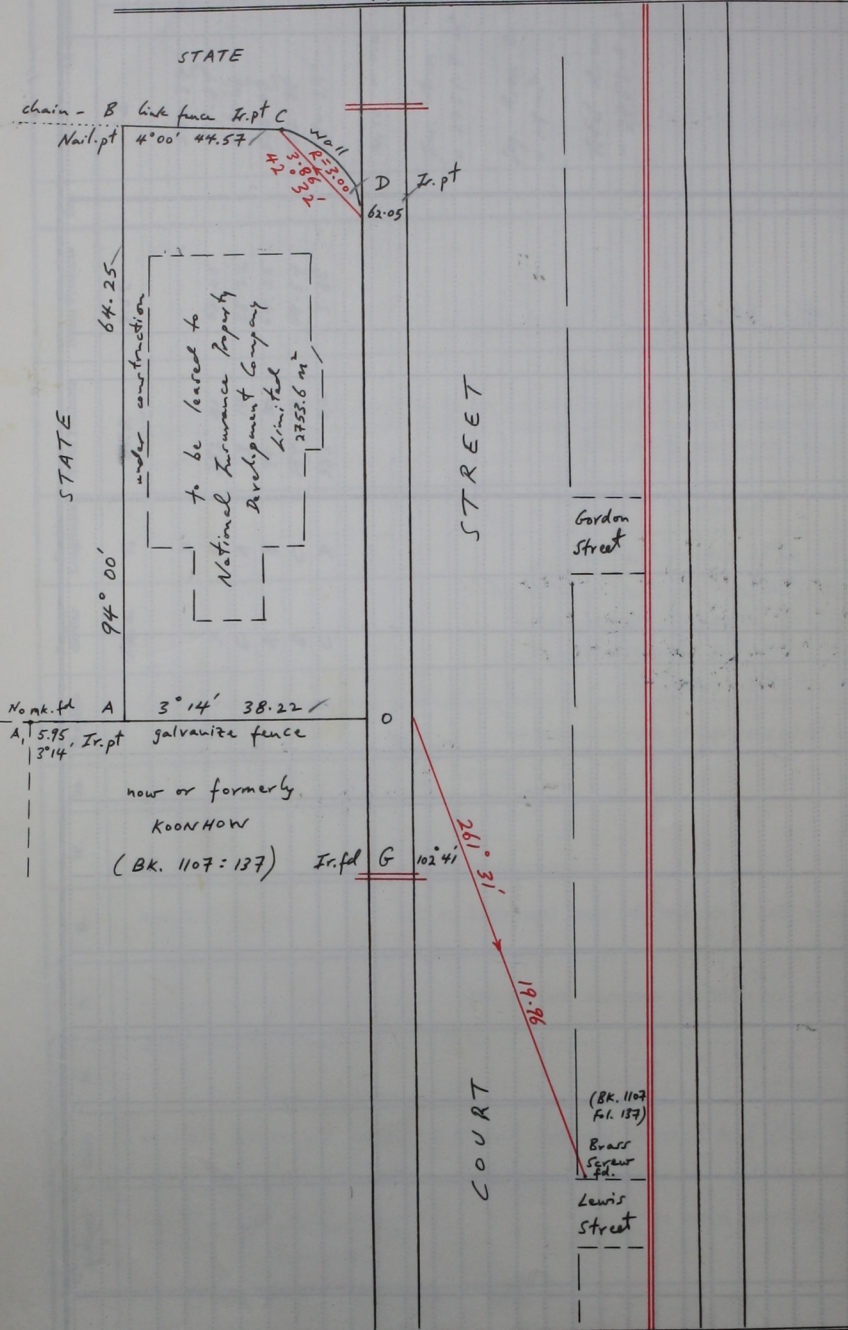 STATE
chain - B link fence Ir.pt C
Nail.pt 4°00' 44.57
Wall
R=3.00
3.86
42°32'
D Ir.pt
62.05
64.25
94° 00'
STATE
under construction
to be leased to
National Insurance Property
Development Company
Limited
2753.6 m²
STREET
Gordon
Street
No mk.fd A 3°14' 38.22
O
A₁ 5.95 Ir.pt galvanize fence
3°14'
now or formerly
KOONHOW
(BK. 1107 : 137) Ir.fd G 102°41'
261° 31'
19.96
COURT
(BK. 1107
Fol. 137)
Brass
Screw
fd.
Lewis
Street